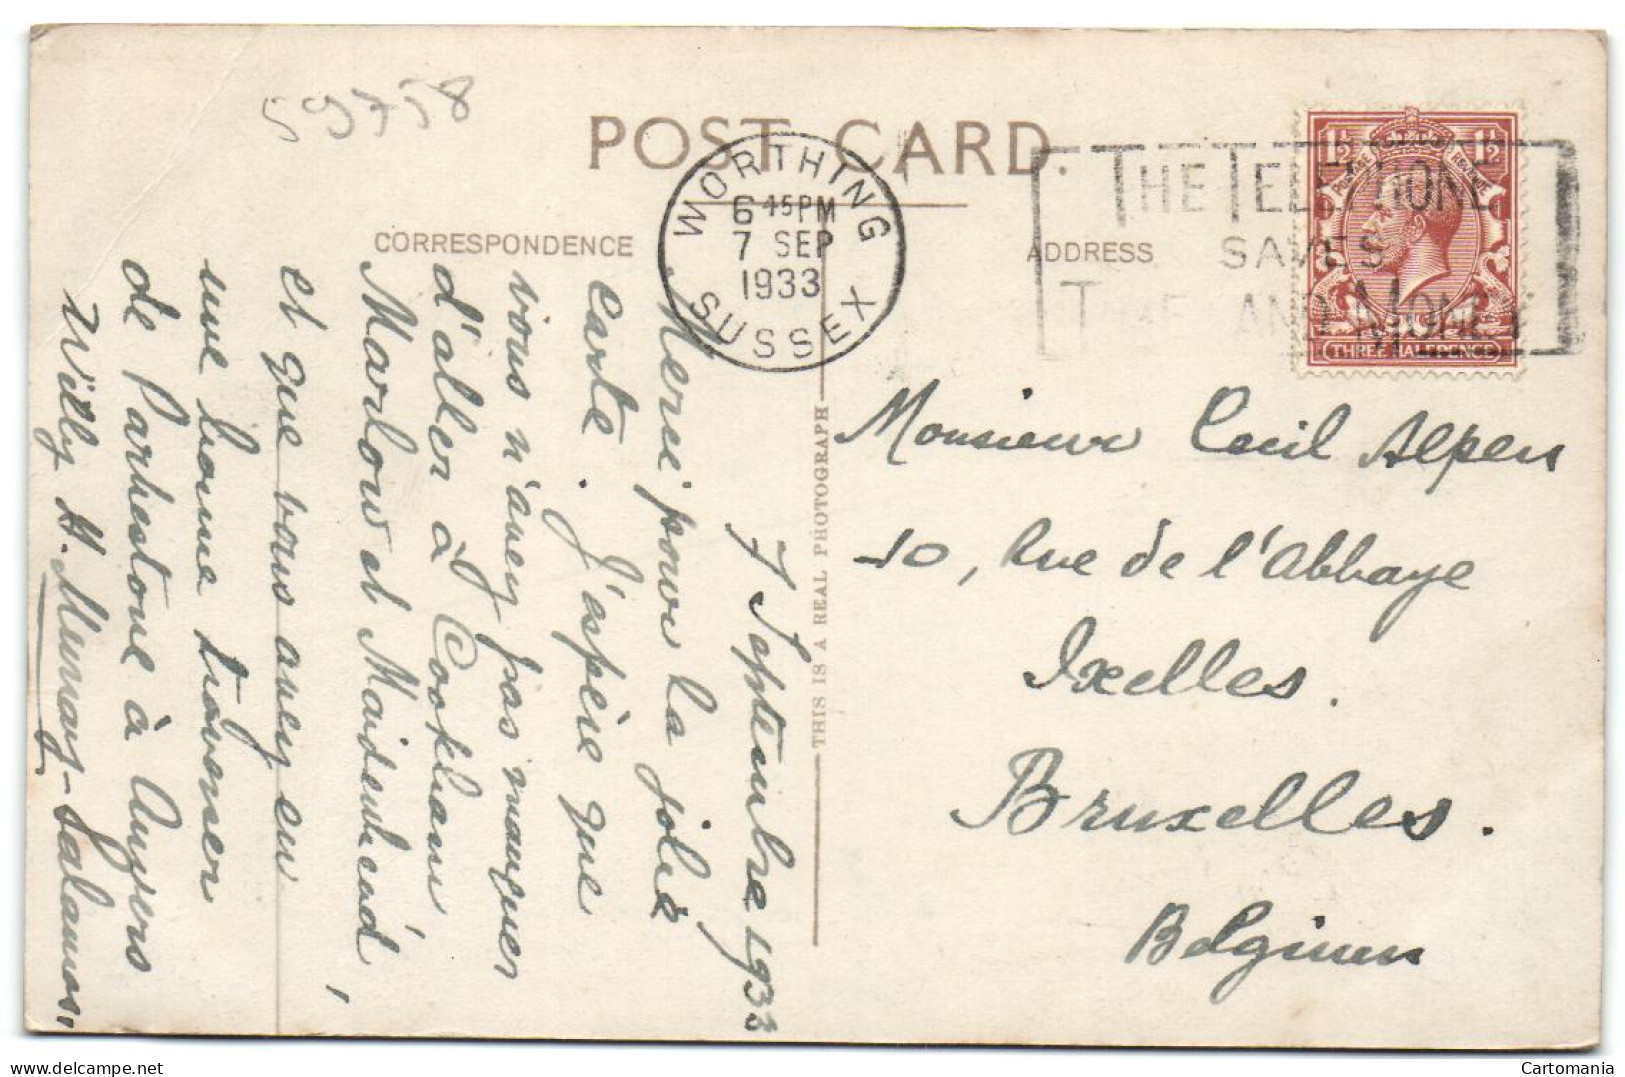 59758
POST CARD.
CORRESPONDENCE
ADDRESS
WORTHING
6 45 PM
7 SEP
1933
SUSSEX
THE TELEPHONE
SAVES
TIME AND MONEY
1½ 1½
POSTAGE REVENUE
THREE HALFPENCE
THIS IS A REAL PHOTOGRAPH
7 Septembre 1933
Merci pour la jolie
carte. J'espère que
vous n'avez pas manquer
d'aller à Cookham
Marlow et Maidenhead,
et que vous avez eu
une bonne traverser
de Parkestone à Anvers
Willy H. Murray-Salamos,
Monsieur Cecil Alpen
10, Rue de l'Abbaye
Ixelles.
Bruxelles.
Belgium
Cartomania